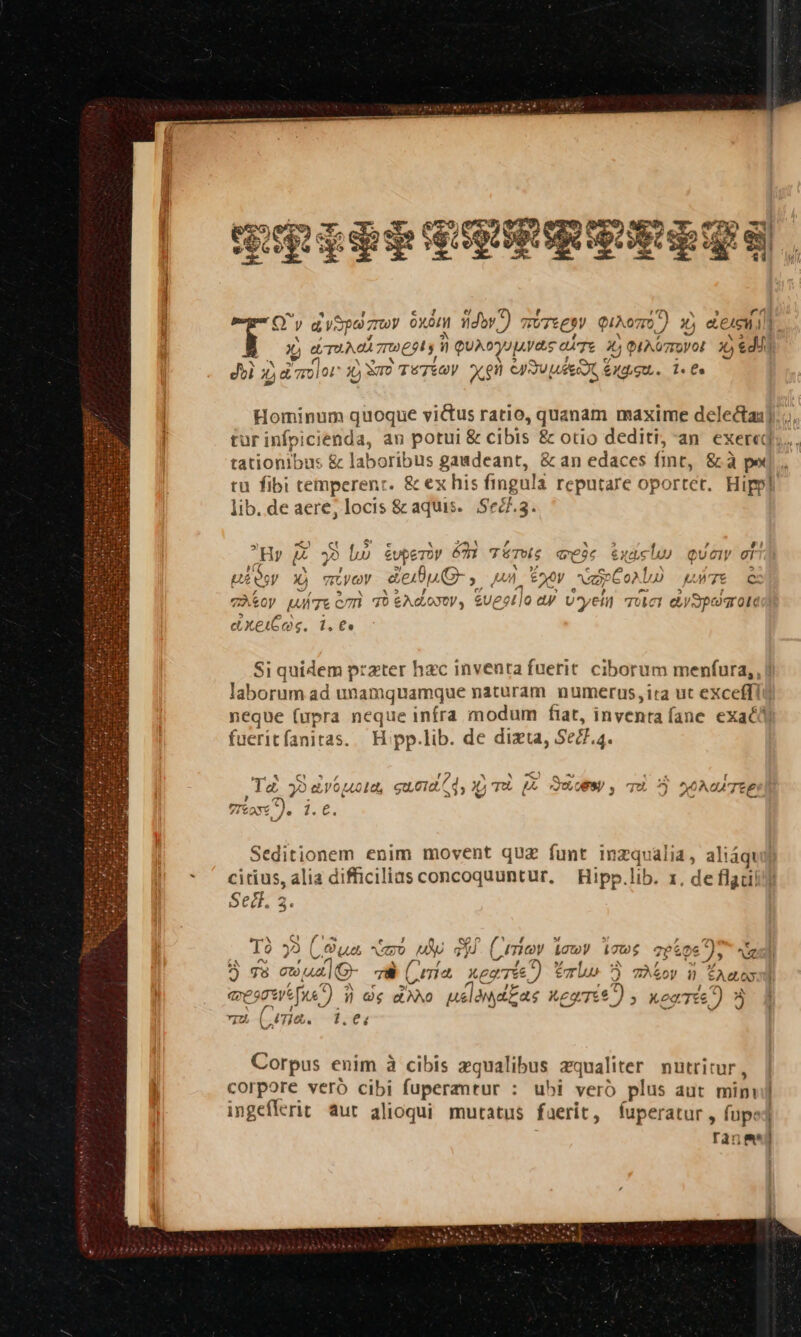 Τῶν ἀνθρώπων ὁκόιη ἥδον πότερον φιλοπό καὶ
καὶ ἀταλαίπωροι, ἢ φιλογυμνασταίτε καὶ φιλόπονοι καὶ
καὶ ἄποτοι· καὶ ἀπὸ τουτέων χρὴ ἐνθυμέεσθαι ἕκαστα. i. e.
Hominum quoque victus ratio, quanam maxime delecta
tur inſpicienda, an potui & cibis & otio dediti, an exerc
tationibus & laboribus gaudeant, & an edaces ſint, & à po
tu ſibi temperent. & ex his ſingula reputare oportet. Hipp
lib. de aere, locis & aquis. Sect.3.
Ἢν μὲν γὰρ ἦν εὑρετὸν ἐπὶ τούτοις πρὸς ἑκάστην φύσιν
μέτρον καὶ πόνων ἀριθμὸς, μὴ ἔχον ὑπερβολὴν μήτε
πλέον μήτε ἐπὶ τὸ ἔλασσον, εὕρητο ἂν ὑγείη τοῖσι ἀνθρώποισι
ἀκριβῶς. i. e.
Si quidem præter hæc inventa fuerit ciborum menſura,
laborum ad unamquamque naturam numerus, ita ut exceſſ
neque ſupra neque infra modum fiat, inventa ſane exa
fuerit ſanitas. Hipp. lib. de diæta, Sect.4.
Τὰ γὰρ ἀνόμοια, στασιάζει, καὶ τὰ μὲν θᾶσσον, τὰ δὲ σχολαίτερον
πέσσεται. i. e.
Seditionem enim movent quæ ſunt inæqualia, aliáqu
citius, alia difficilias concoquuntur. Hipp. lib. 1. de flati
Sect. 3.
Τὸ γὰρ σῶμα ὑπὸ μὲν τῶν σιτίων ἴσων ἴσως τρέφεται,
δὲ τοῦ σώματος τὰ σιτία κρατέεται ἐπὴν δὲ πλέον ἢ ἔλασσον
προσενέγκηται ἢ ὡς ἄλλο μεταλλάξας κρατέεται, κρατέεται δὲ
τὰ σιτία. i. e.
Corpus enim à cibis æqualibus æqualiter nutritur,
corpore verò cibi ſuperantur : ubi verò plus aut minu
ingeſſerit aut alioqui mutatus fuerit, ſuperatur, ſupe
ran